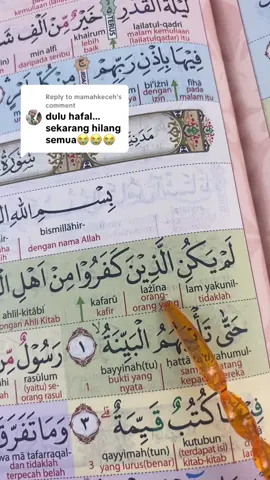 لَيْلَةُ الْقَدْرِ خَيْرٌ مِّنْ أَلْفِ
lailatul-qadri
khairum
min alfi
kemuliaan
(lailatulqadar) itu
lebih baik
daripada seribu
TERUS
فِيهَا بِإِذْنِ رَبِّهِمْ مِّنْ كُلِّ
fīhā
bi'iżni
pada malam itu
dengan izin
Reply to mamahkeceh's comment
dulu hafal... sekarang hilang semua😭😭😭
بِسْمِ اللهِ
bismillāhir-
dengan nama Allah
لَمْ يَكُنِ الَّذِينَ كَفَرُوا مِنْ أَهْلِ
lam yakunil-
lażīna
kafarū
ahlil-kitābi
tidaklah
orang-orang yang
kafir
حَتَّى تَأْتِيَهُمُ الْبَيِّنَةُ ١ رَسُولٌ
ḥattā
bayyinah(tu)
1
rasūlum
bukti yang nyata
(yaitu) se-orang rasul
فِيهَا كُتُبٌ قَيِّمَةٌ ٣ وَمَا تَفَرَّقَ
kutubun
qayyimah(tun)
3
wa mā tafarraqal-
(terdapat isi) kitab-kitab
yang lurus(benar)
dan tidaklah terpecah belah